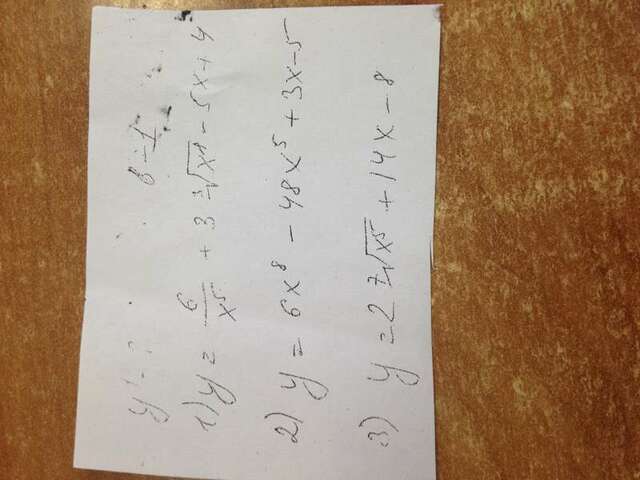 y' - ? в-1
1) y = 6/x⁵ + 3 ∛x⁸ - 5x + 4
2) y = 6x⁸ - 48x⁵ + 3x - 5
3) y = 2 ⁷√x⁵ + 14x - 8